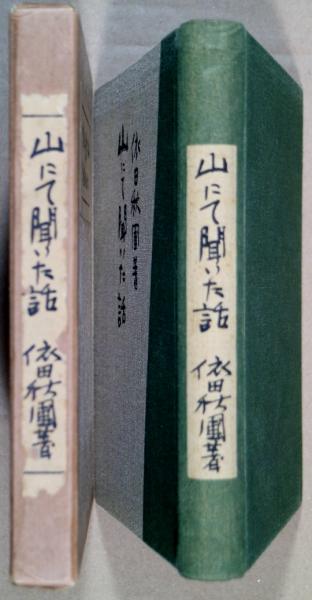 山にて聞いた話　依田秋圃著
依田秋圃著
山にて聞いた話
山にて聞いた話　依田秋圃著